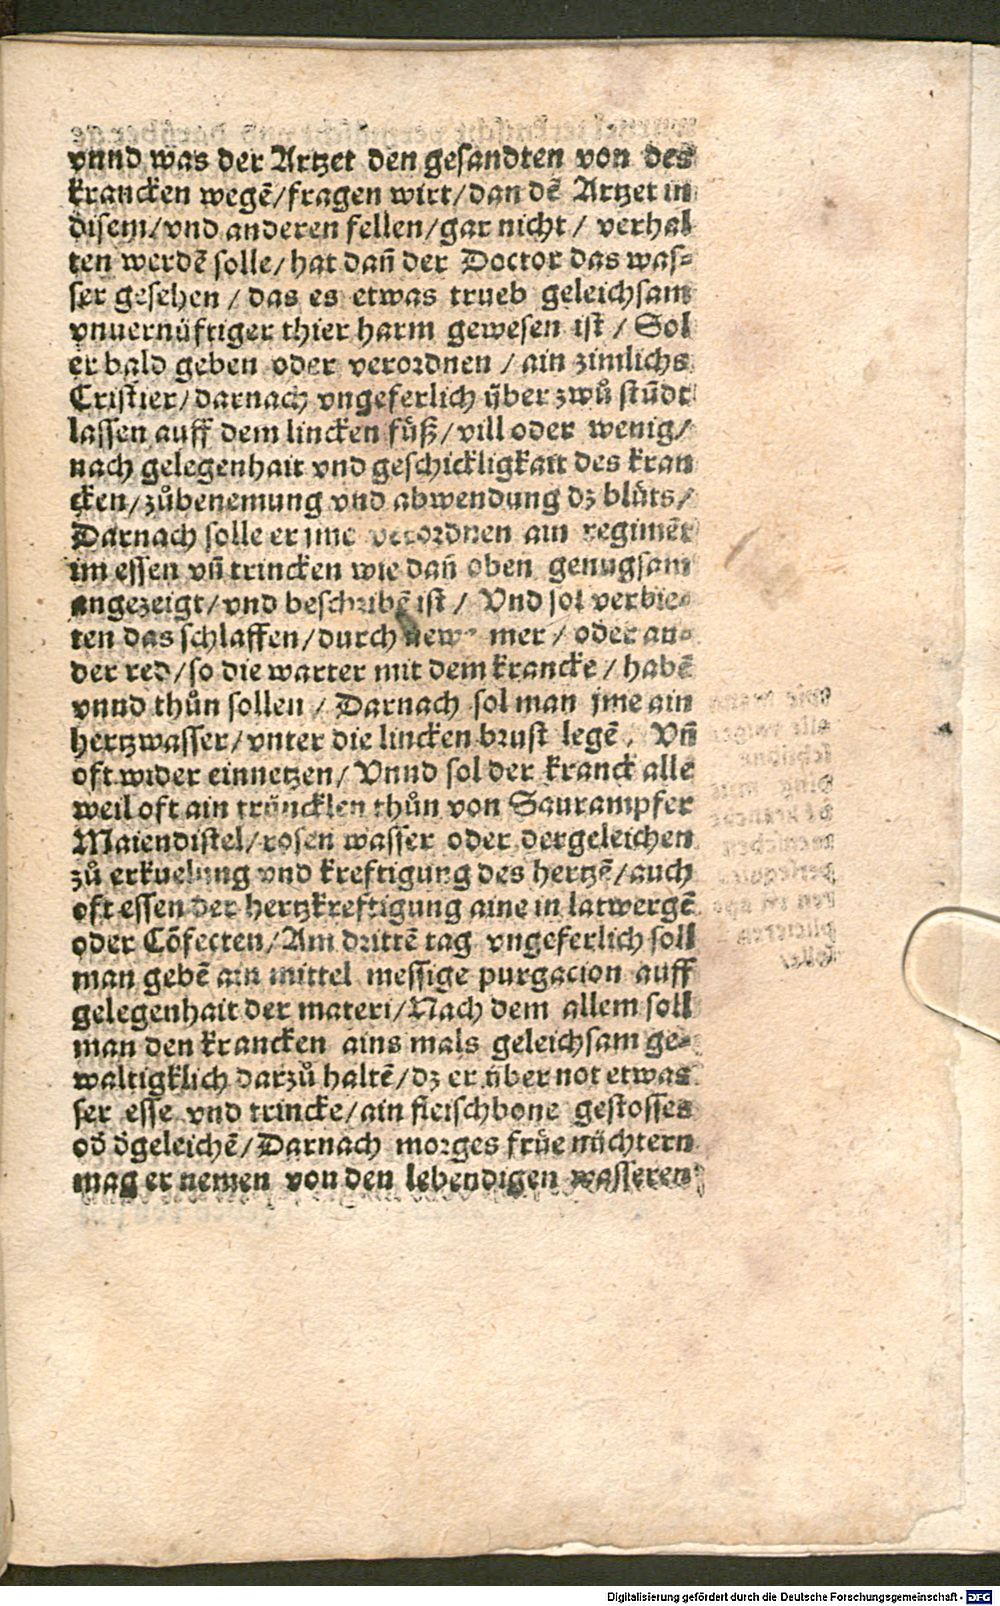 vnnd was der Artzet den gesandten von des
krancken wegẽ/fragen wirt/dan dẽ Artzet in
disem/vnd anderen fellen/gar nicht/ verhal
ten werdẽ solle/hat dañ der Doctor das was⸗
ser gesehen/das es etwas trueb geleichsam
vnuernüftiger thier harm gewesen ist/ Sol
er bald geben oder verordnen/ain zimlichs
Cristier/darnach vngeferlich über zwů stũdt
lassen auff dem lincken fůß/vill oder wenig/
nach gelegenhait vnd geschickligkait des kran
cken/zůbenemung vnd abwendung dz blůts/
Darnach solle er jme verordnen ain regimẽt
im essen vñ trincken wie dañ oben genugsam
angezeigt/vnd beschribẽ ist/ Vnd sol verbie⸗
ten das schlaffen/durch mer/oder an⸗
der red/so die warter mit dem krancke/habẽ
vnnd thůn sollen/ Darnach sol man jme ain
hertzwasser/vnter die lincken brust legẽ/ Vñ
oft wider einnetzen/Vnnd sol der kranck alle
weil oft ain trüncklen thůn von Saurampfer
Maiendistel/rosen wasser oder dergeleichen
zů erkuelung vnd kreftigung des hertzẽ/auch
oft essen der hertzkreftigung aine in latwergẽ
oder Cõfecten/Am drittẽ tag vngeferlich soll
man gebẽ ain mittel messige purgacion auff
gelegenhait der materi/Nach dem allem soll
man den krancken ains mals geleichsam ge⸗
waltigklich darzů haltẽ/dz er über not etwas
ser esse vnd trincke/ain fleischbone gestosses
od̕ d̕geleichẽ/Darnach morges früe nüchtern
mag er nemen von den lebendigen wasseren
Digitalisierung gefördert durch die Deutsche Forschungsgemeinschaft - DFG